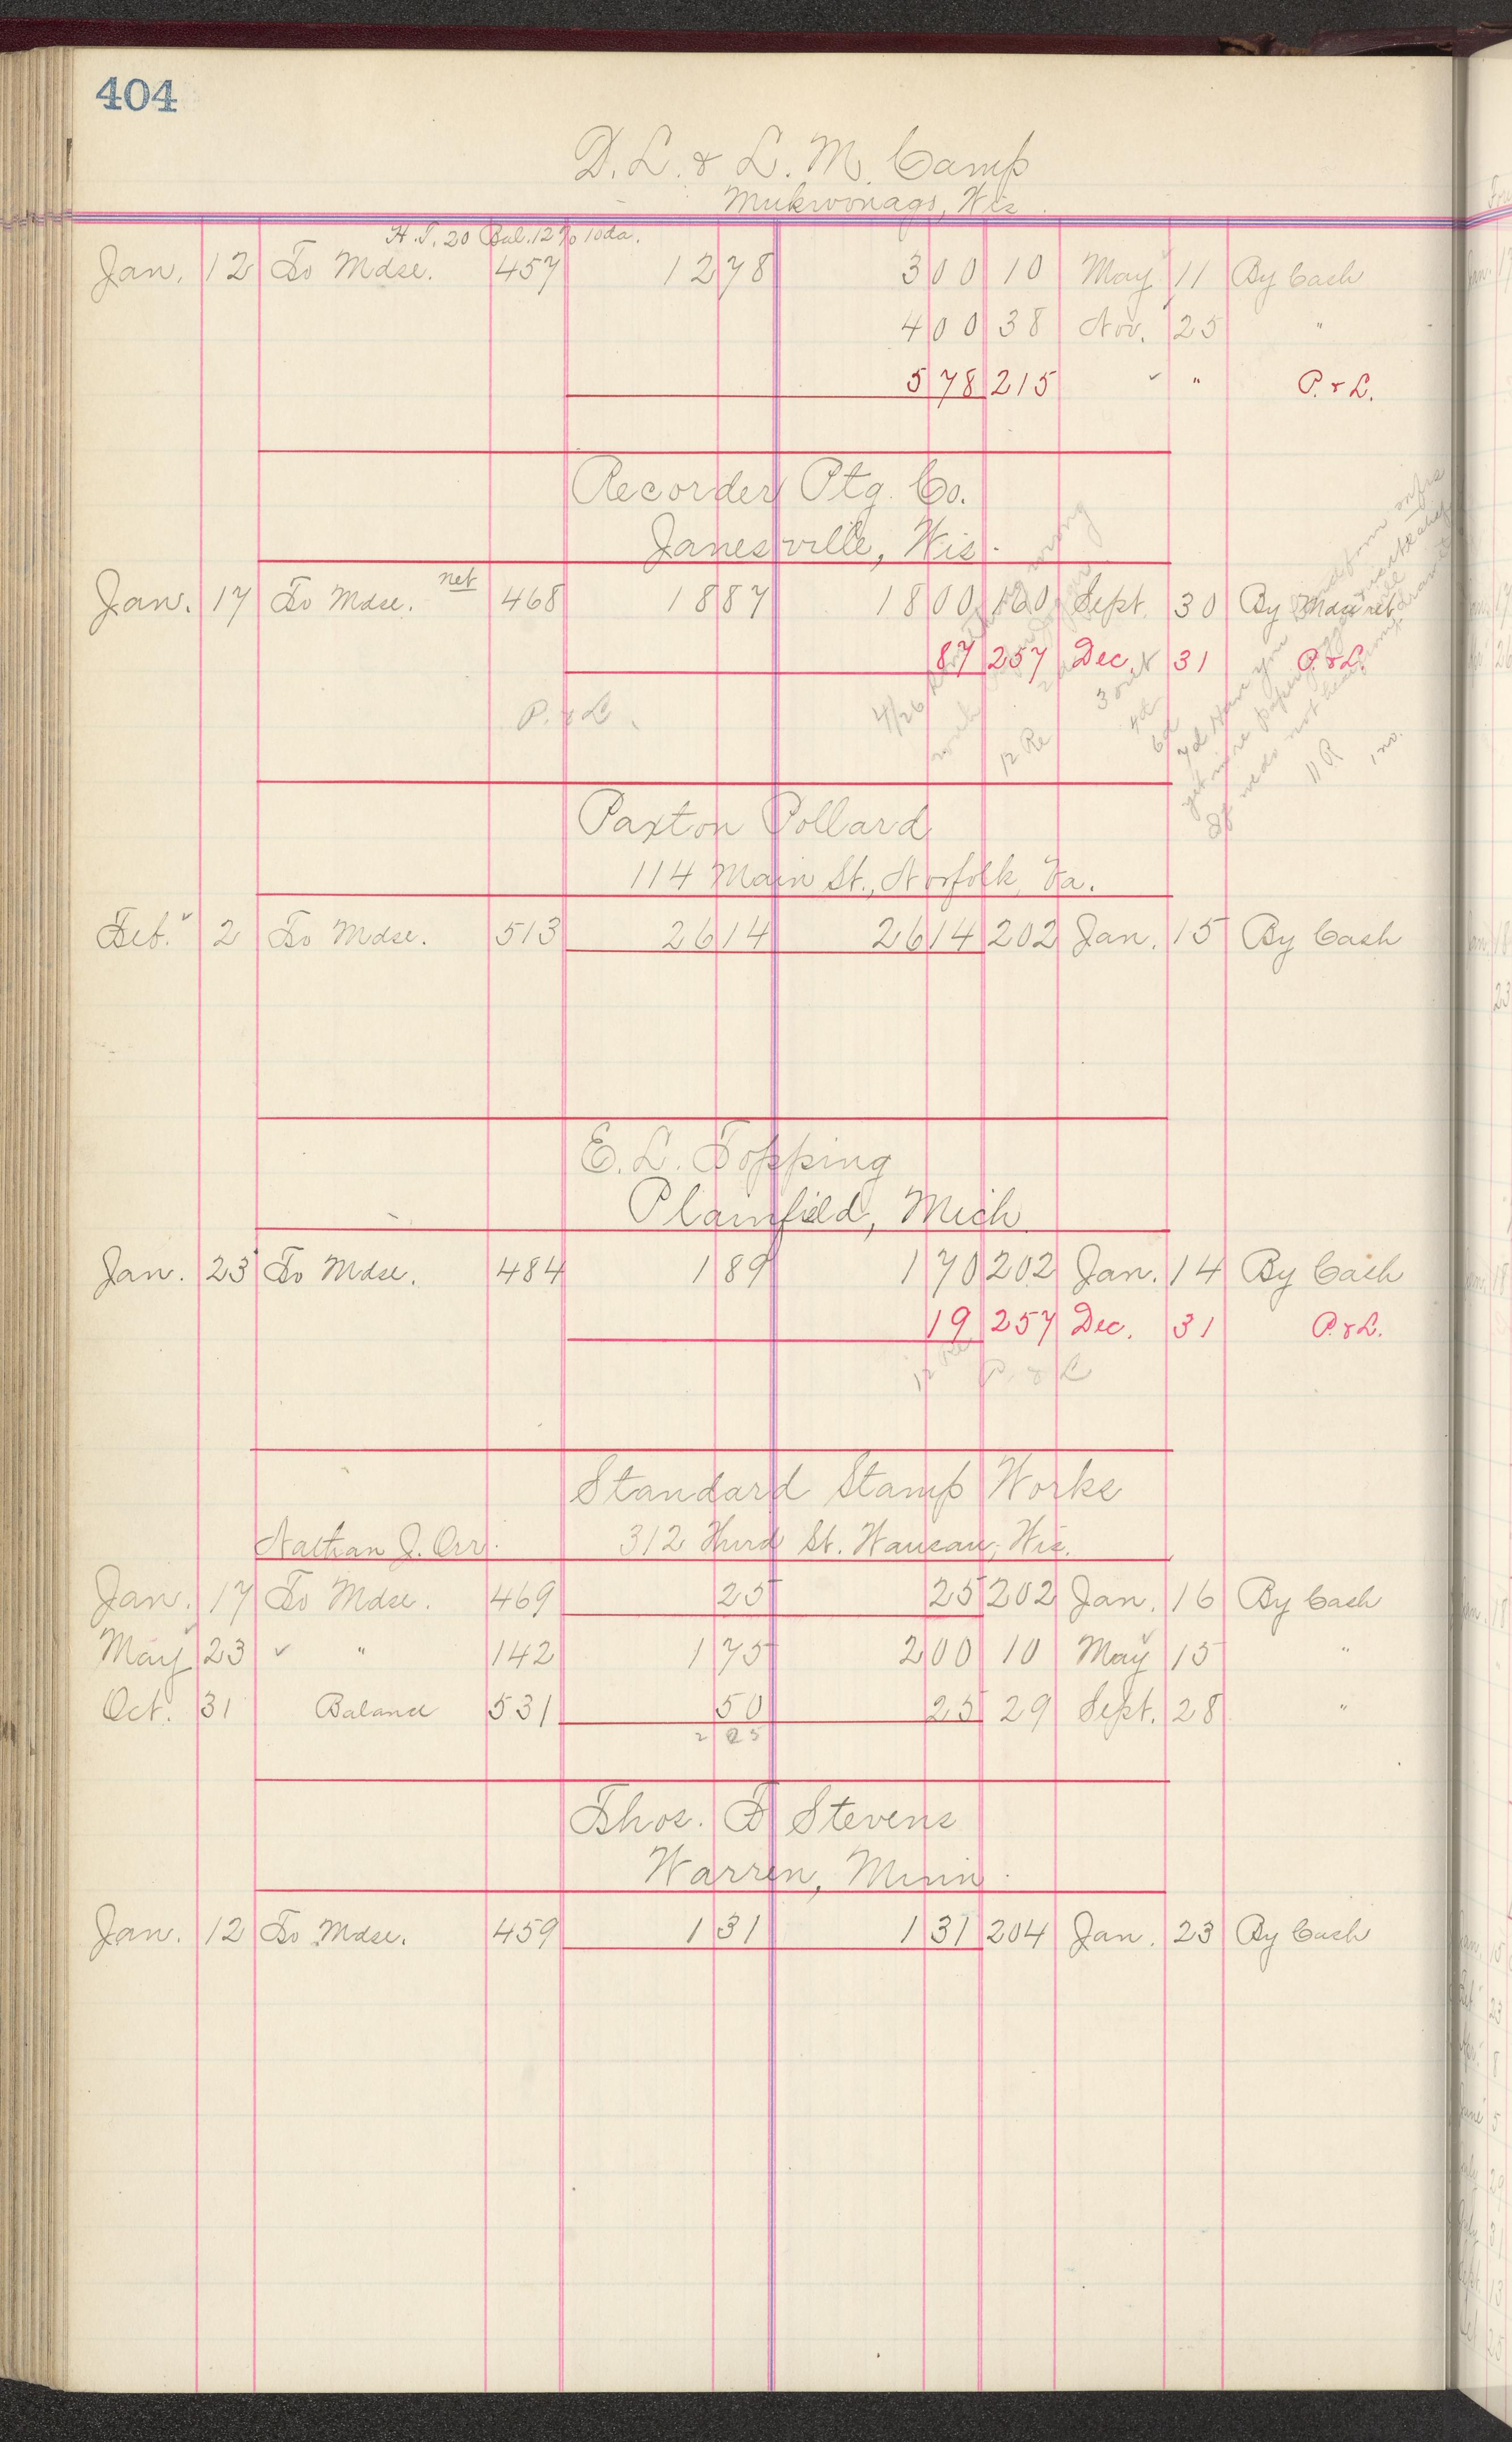 404
D. L. & L. M. Camp
Mukwonago, Wis
H. T. 20 Bal. 12% 10da.
Jan. 12 To Mdse. 457 12 78 3 00 10 May 11 By Cash
4 00 38 Nov. 25 "
5 78 215 " " P. & L.
Recorder Ptg. Co.
Janesville, Wis.
Jan. 17 To Mdse. net 468 18 87 18 00 160 Sept. 30 By Mdse ret.
87 257 Dec. 31 P. & L.
P. & L. 4/26
12 Re
11 R 1 no.
Paxton Pollard
114 Main St., Norfolk, Va.
Feb. 2 To Mdse. 513 26 14 26 14 202 Jan. 15 By Cash
E. L. Topping
Plainfield, Mich.
Jan. 23 To Mdse. 484 1 89 1 70 202 Jan. 14 By Cash
19 257 Dec. 31 P. & L.
P. & L
Standard Stamp Works
Nathan J. Orr. 312 Third St. Wausau, Wis.
Jan. 17 To Mdse. 469 25 25 202 Jan. 16 By Cash
May 23 " " 142 1 75 2 00 10 May 15 "
Oct. 31 Balance 531 50 25 29 Sept. 28 "
2 25
Thos. F Stevens
Warren, Minn.
Jan. 12 To Mdse. 459 1 31 1 31 204 Jan. 23 By Cash